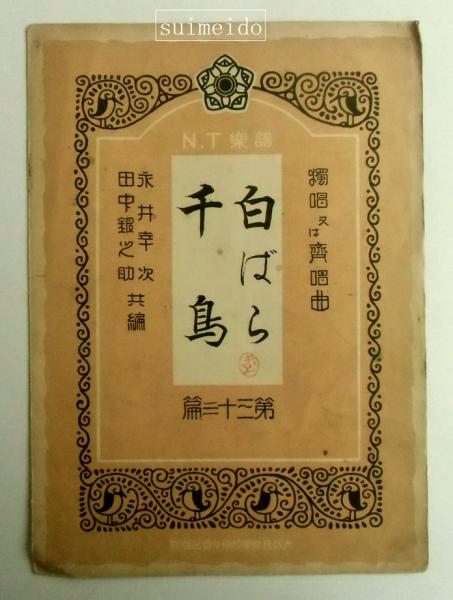 suimeido
N.T 樂譜
獨唱又は齊唱曲
白ばら
千鳥
永井幸次
田中銀之助 共編
第三十三篇